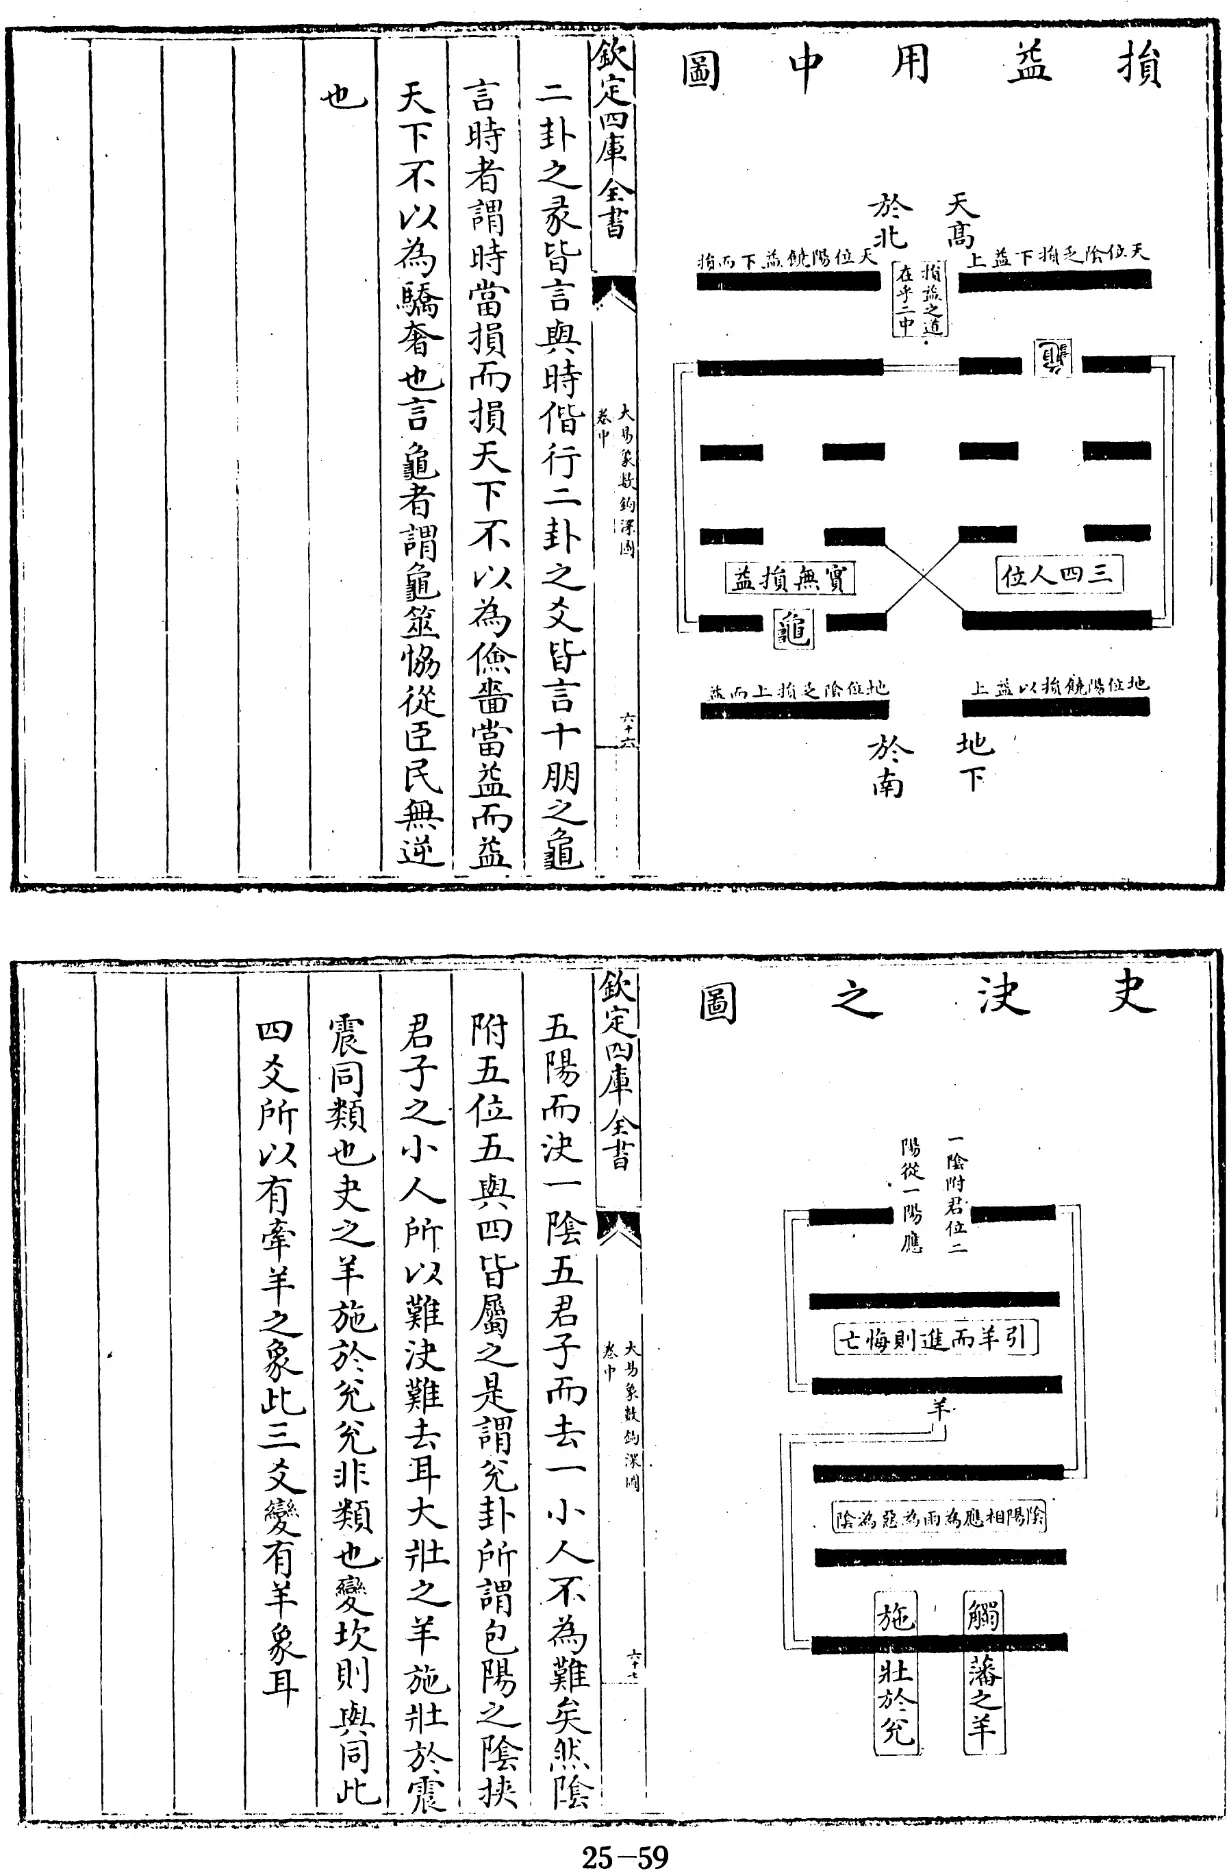 損益用中圖
天高
於北
天位陰乏損下益上
天位陽饒益下而損
損益之道
在乎二中
龜
三四人位
實無損益
龜
地位陽饒損以益上
地位陰乏損上而益
地下
於南
欽定四庫全書
大易象數鈎深圖
卷中
六十六
二卦之彖皆言與時偕行二卦之爻皆言十朋之龜
言時者謂時當損而損天下不以為儉嗇當益而益
天下不以為驕奢也言龜者謂龜筮協從臣民無逆
也
夬決之圖
一陰附君位二
陽從一陽應
引羊而進則悔亡
羊
陰陽相應為雨為惡為陰
觸藩之羊
施壯於兊
欽定四庫全書
大易象數鈎深圖
卷中
六十七
五陽而決一陰五君子而去一小人不為難矣然陰
附五位五與四皆屬之是謂兊卦所謂包陽之陰挾
君子之小人所以難決難去耳大壯之羊施壯於震
震同類也夬之羊施於兊兊非類也變坎則與同此
四爻所以有牽羊之象此三爻變有羊象耳
25-59